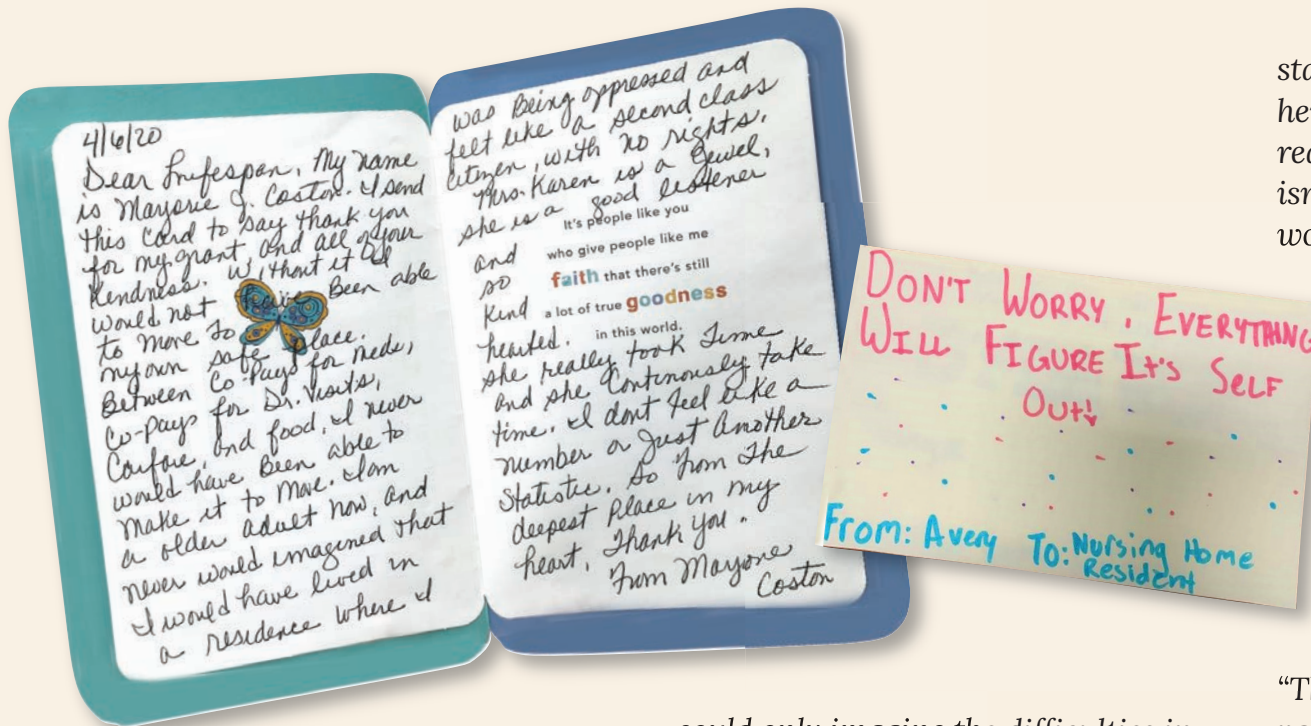 4/6/20
Dear Lifespan, My name
is Marjorie J. Coston. I send
this card to say thank you
for my grant and all of your
kindness. Without it I
would not have Been able
to move to
my own safe place.
Between Co-Pays for meds,
Co-pays for Dr. Visits,
Carfare, and food, I never
would have Been able to
make it to Move. I am
a older adult now, and
never would imagined that
I would have lived in
a residence where I
was Being oppressed and
felt like a second class
Citizen, with no rights.
Mrs. Karen is a Jewel,
she is a good listener
and
so
Kind
hearted.
It's people like you
who give people like me
faith that there's still
a lot of true goodness
in this world.
she really took Time
and she Continously take
time. I dont feel like a
number or Just Another
Statistic. So from The
deepest Place in my
heart, Thank you.
From Marjorie
Coston
DON'T WORRY, EVERYTHING
WILL FIGURE IT'S SELF
OUT!
From: Avery To: Nursing Home
Resident
could only imagine the difficulties in
"T